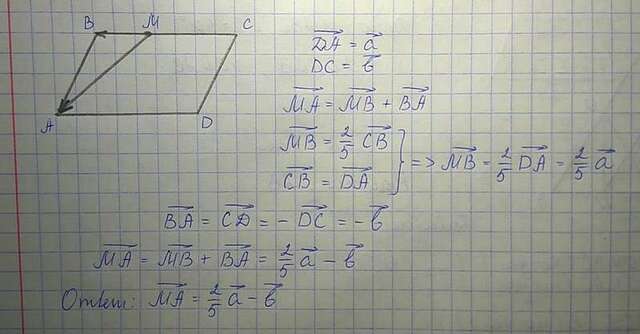 B M C
A D
→DA = →a
→DC = →b
→MA = →MB + →BA
→MB = 2/5 →CB
→CB = →DA
} => →MB = 2/5 →DA = 2/5 →a
→BA = →CD = - →DC = - →b
→MA = →MB + →BA = 2/5 →a - →b
Ответ: →MA = 2/5 →a - →b